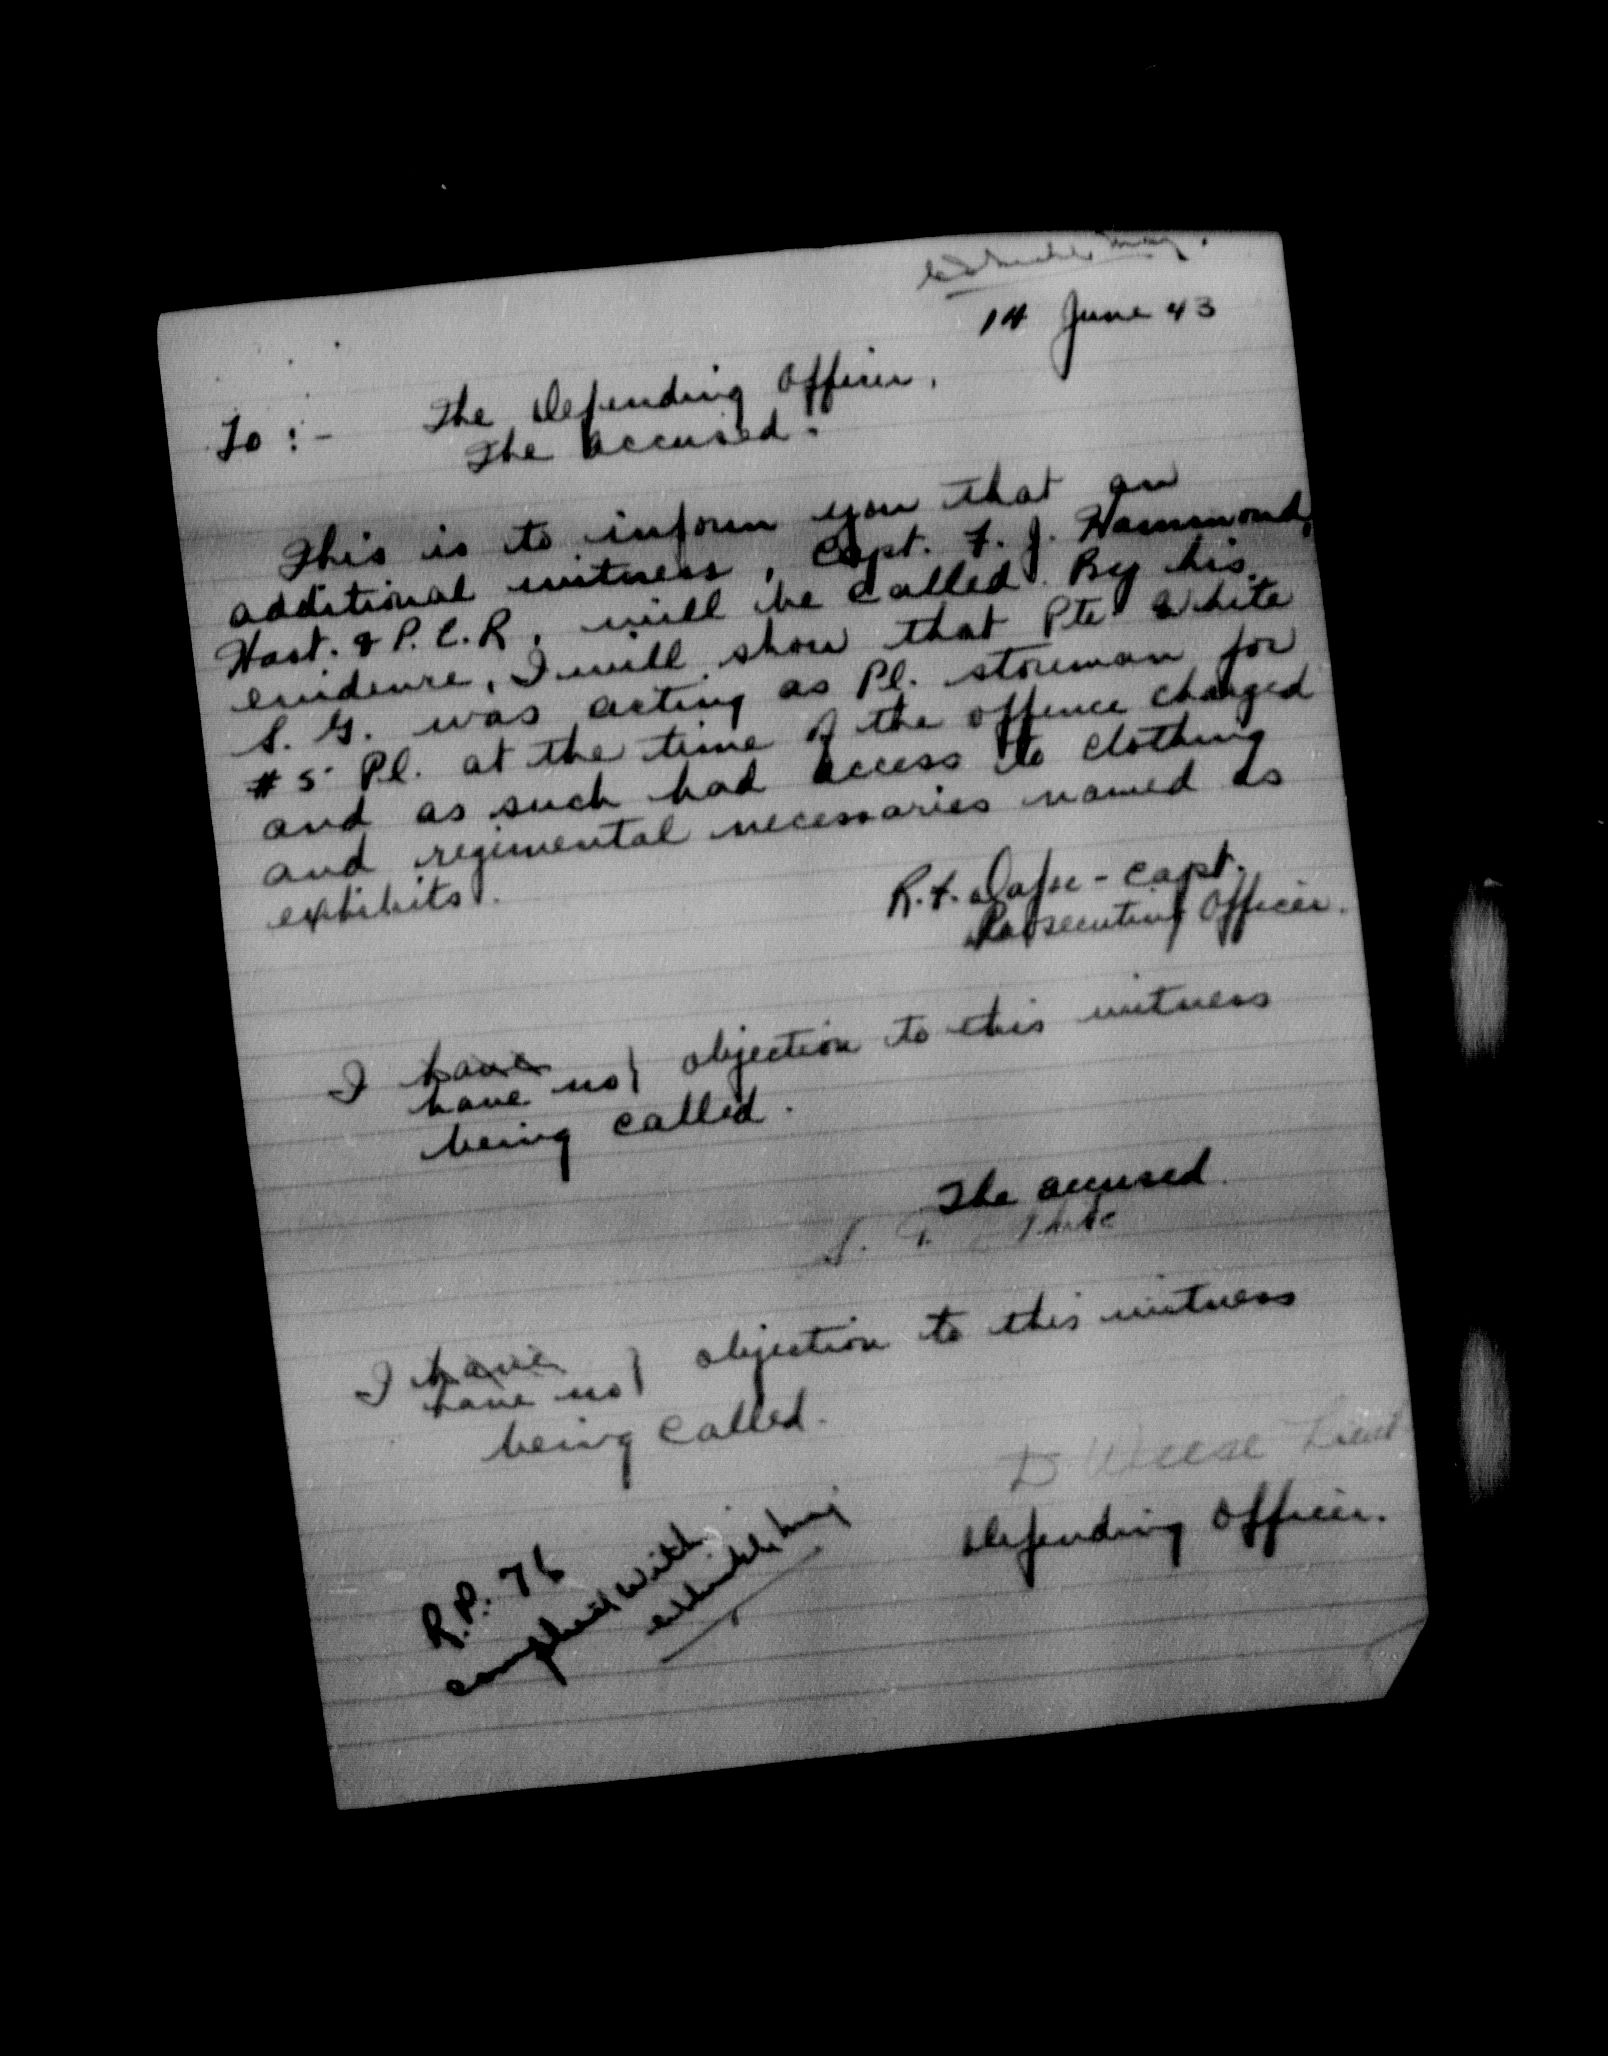 14 June 43
To :- The Defending Officer.
The accused.
This is to inform you that an
additional witness, Capt. F. J. Hammond,
Hast. & P. E. R, will be called. By his
evidence, I will show that Pte White
S. G. was acting as Pl. storeman for
# 5 Pl. at the time of the offence charged
and as such had access to clothing
and regimental necessaries named as
exhibits.
R. F. - Capt.
Prosecuting Officer.
I have
have no } objection to this witness
being called.
The accused
S. G. White
I have
have no } objection to this witness
being called.
D Weese Lieut
Defending Officer.
R.P. 76
complied with